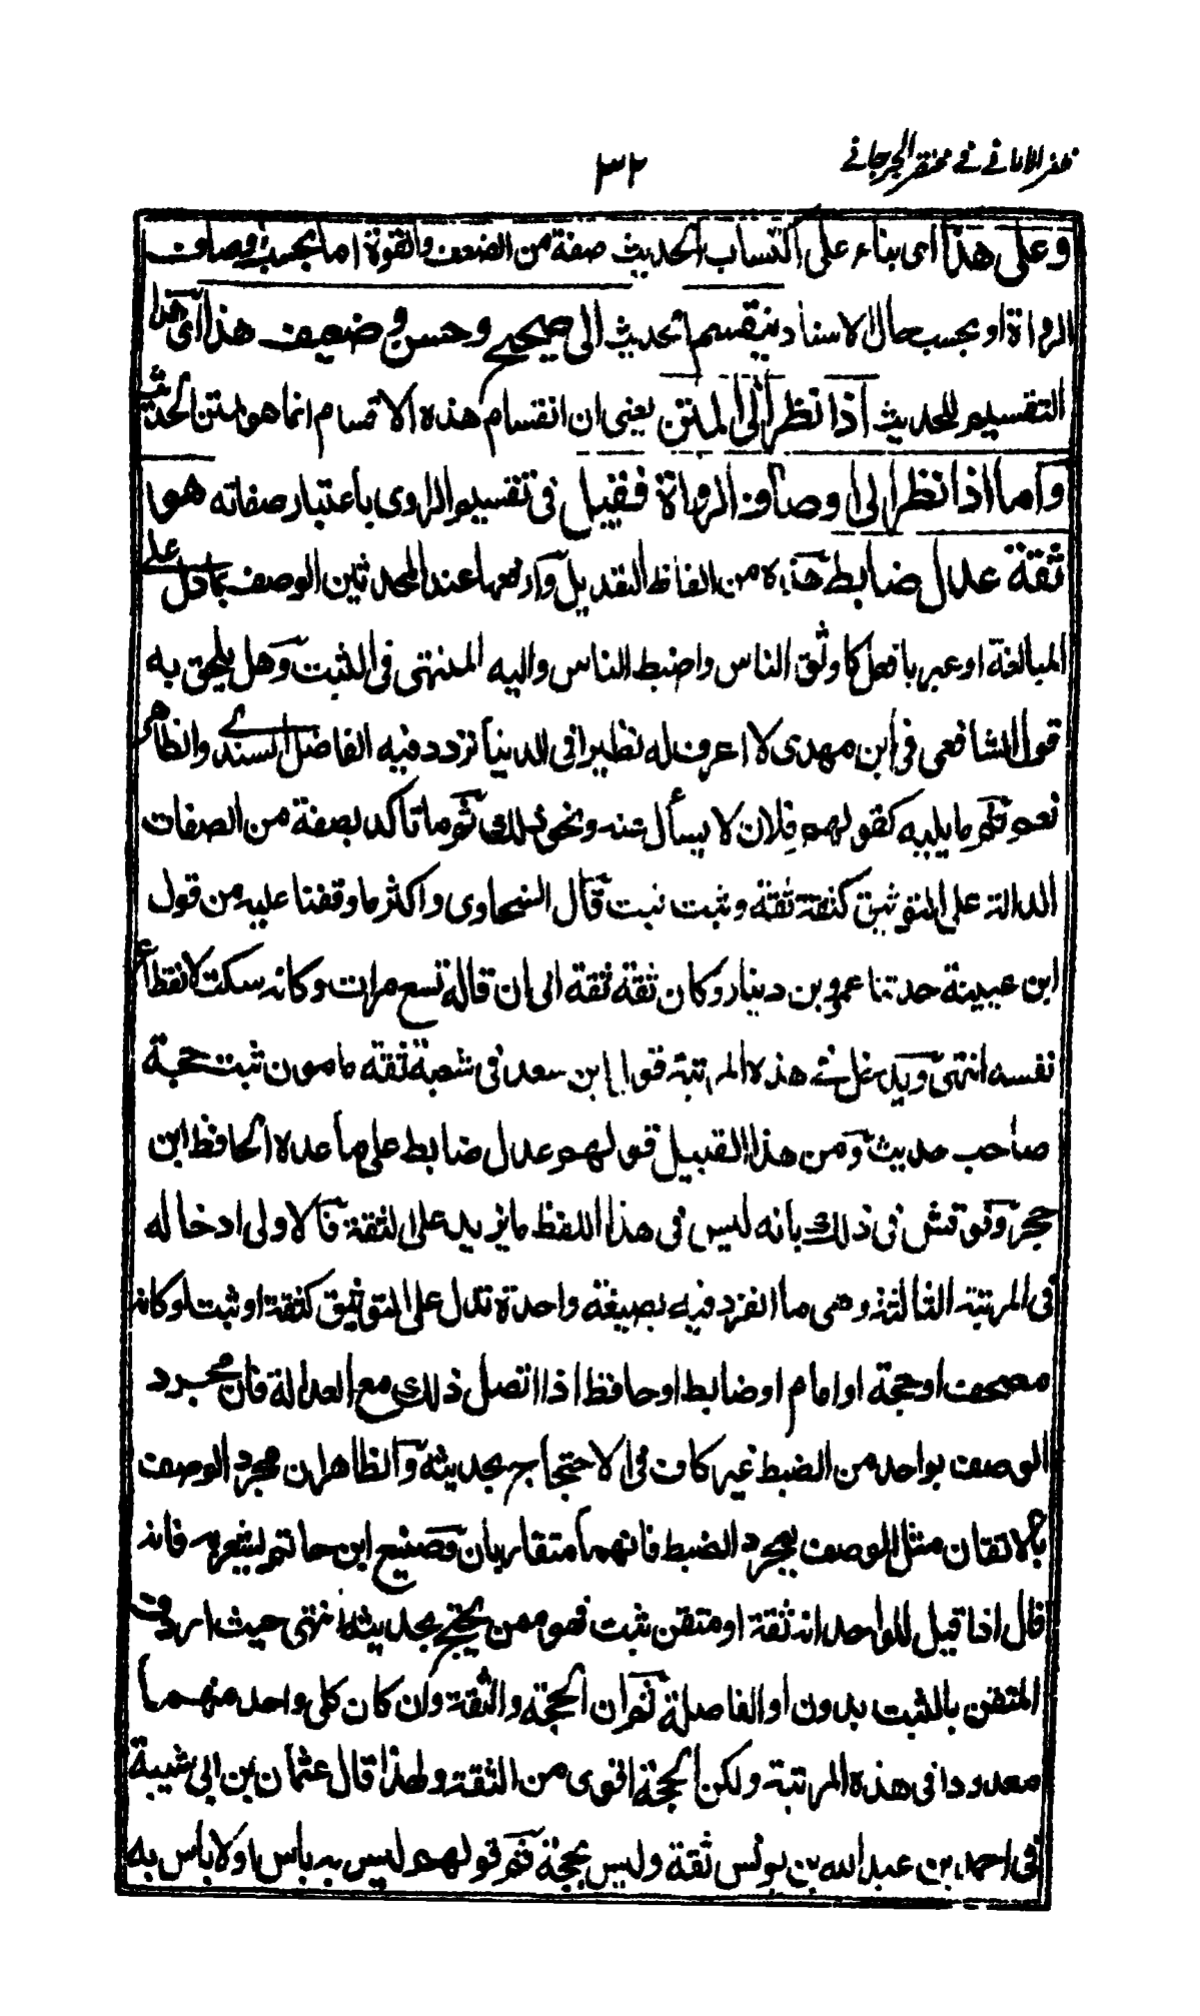 ظفر الاماني في مختصر الجرجاني
٣٢
وعلى هذا اى بناء على اكتساب الحديث صفة من الضعف والقوة اما بحسب اوصاف
الرواة او بحسب حال الاسناد ينقسم الحديث الى صحيح وحسن وضعيف هذا اى هذا
التقسيم للحديث اذا نظر الى المتن يعنى ان انقسام هذه الاقسام انما هو لمتن الحديث
واما اذا نظر الى اوصاف الرواة فقيل فى تقسيم الراوى باعتبار صفاته هو
ثقة عدل ضابط هذه من الفاظ التعديل وارفعها عند المحدثين الوصف بما دل على
المبالغة او عبر بافعل كاوثق الناس واضبط الناس واليه المنتهى فى التثبت وهل يلحق به
قول الشافعى فى ابن مهدى لا اعرف له نظيرا فى الدنيا تردد فيه الفاضل السندى والظاهر
نعم ثم ما يليه كقولهم فلان لا يسأل عنه ونحو ذلك ثم ما تاكد بصفة من الصفات
الدالة على التوثيق كثقة ثقة وثبت ثبت قال السخاوى واكثر ما وقفنا عليه من قول
ابن عيينة حدثنا عمرو بن دينار وكان ثقة ثقة الى ان قاله تسع مرات وكانه سكت لانقطاع
نفسه انتهى ويدخل فى هذه المرتبة قول ابن سعد فى شعبة ثقة مامون ثبت حجة
صاحب حديث ومن هذا القبيل قولهم عدل ضابط على ما عده الحافظ ابن
حجر ونوقش فى ذلك بانه ليس فى هذا اللفظ ما يزيد على الثقة فالاولى ادخاله
فى المرتبة الثالثة وهى ما انفرد فيه بصيغة واحدة تدل على التوثيق كثقة او ثبت او كانه
مصحف او حجة او امام او ضابط او حافظ اذا اتصل ذلك مع العدالة فان مجرد
الوصف بواحد من الضبط غير كاف فى الاحتجاج بحديثه والظاهر ان مجرد الوصف
بالاتقان مثل الوصف بمجرد الضبط فانهما متقاربان وصنيع ابن حاتم يشعر به فانه
قال اذا قيل للواحد انه ثقة او متقن ثبت فهو ممن يحتج بحديثه انتهى حيث اردف
المتقن بالثبت بدون او الفاصلة ثم ان الحجة والثقة وان كان كل واحد منهما
معدودا فى هذه المرتبة ولكن الحجة اقوى من الثقة ولهذا قال عثمان بن ابى شيبة
فى احمد بن عبد الله بن يونس ثقة وليس بحجة ثم قولهم ليس به باس او لا باس به